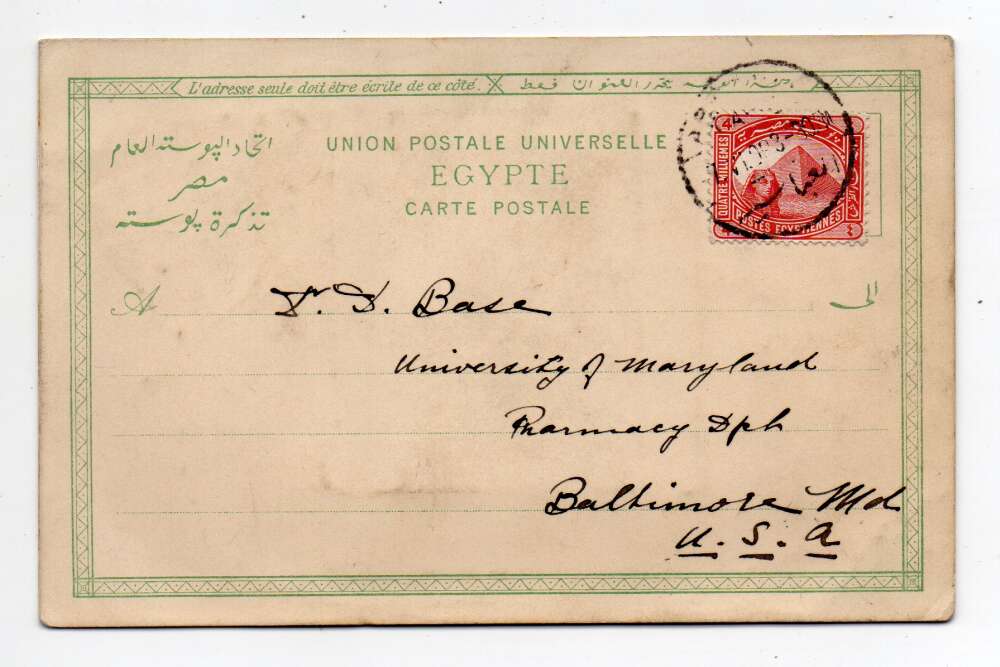 L'adresse seule doit être écrite de ce côté.
اتحاد البوسته العام
مصر
تذكرة بوسته
UNION POSTALE UNIVERSELLE
EGYPTE
CARTE POSTALE
QUATRE MILLIEMES
POSTES EGYPTIENNES
A
الى
Dr. D. Base
University of Maryland
Pharmacy Dph
Baltimore Md
U. S. A